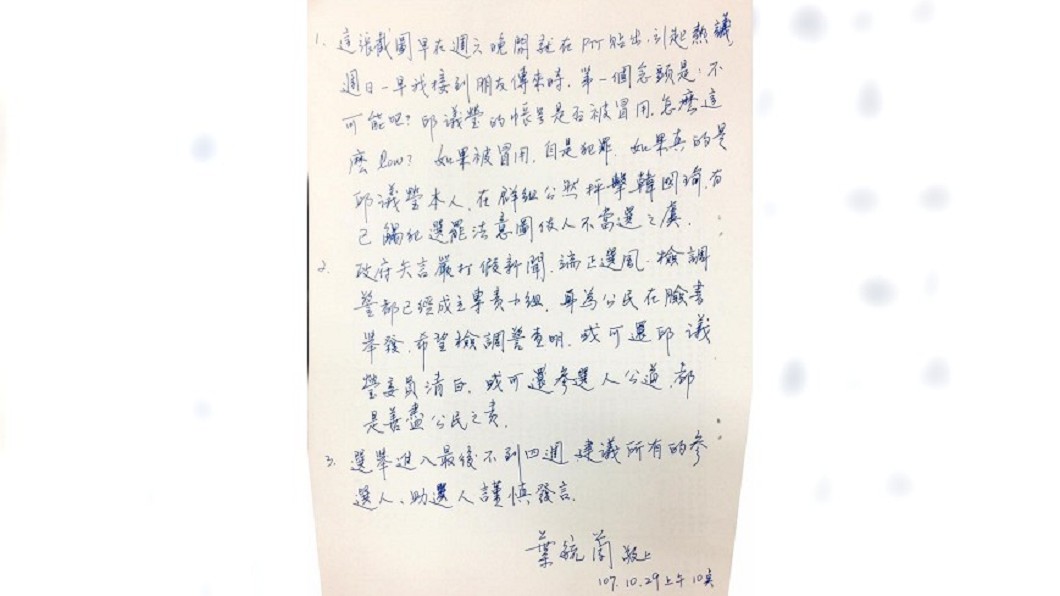 1. 這張截圖早在週六晚間就在PTT貼出,引起熱議,
週日一早我接到朋友傳來時,第一個念頭是:不
可能吧?邱議瑩的帳號是否被冒用,怎麼這
麼low?如果被冒用,自是犯罪.如果真的是
邱議瑩本人,在群組公然抨擊韓國瑜,有
已觸犯選罷法意圖使人不當選之虞.
2. 政府矢言嚴打假新聞、端正選風.檢調
警都已經成立專責小組,身為公民在臉書
舉發,希望檢調警查明,或可還邱議
瑩委員清白,或可還參選人公道,都
是善盡公民之責.
3. 選舉進入最後不到四週,建議所有的參
選人、助選人謹慎發言.
葉毓蘭 敬上
107.10.29上午10點